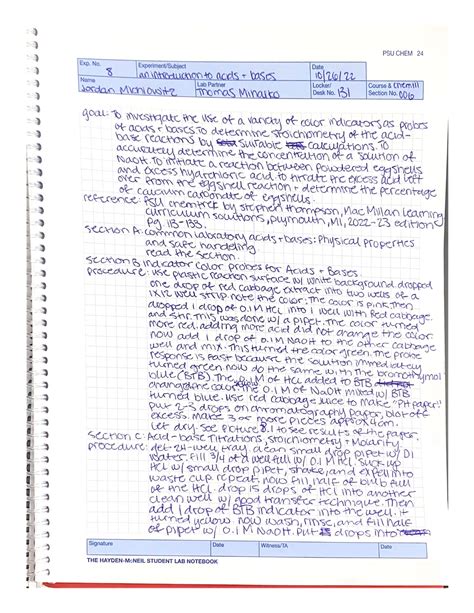 PSU CHEM 24
Exp. No. 8
Experiment/Subject an introduction to acids + bases
Date 10/26/22
Name Jordan
Lab Partner Thomas
Locker/Desk No. 131
Course & Section No. Chem 111 006
goal: To investigate the use of a variety of color indicators as probes
of acids + bases. To determine stoichiometry of the acid-
base reactions by suitable calculations. To
accurately determine the concentration of a solution of
NaOH. To initiate a reaction between powdered eggshells
and excess hydrochloric acid. To titrate the excess acid left
over from the eggshell reaction + determine the percentage
of calcium carbonate of eggshells.
reference: PSU chemtrek by Stephen Thompson, MacMillan Learning
curriculum solutions, Plymouth, MI, 2022-23 edition
Pg.
Section A: common laboratory acids + bases: Physical properties
and safe handeling
read the section.
Section B: Indicator color probes for Acids + Bases.
procedure: Use plastic reaction surface w/ white background dropped
one drop of red cabbage extract into two wells of a
1x12 well strip note the color: The color is pink. then
dropped 1 drop of 0.1 M HCl into 1 well with Red cabbage.
and stir. this was done w/ a pipet. The color turned
more red. adding more acid did not change the color.
now add 1 drop of 0.1 M NaOH to the other cabbage
well and mix. This turned the color green. The probe
response is fast because the solution immediately
turned green now do the same with the bromothymol
blue (BTB). The 0.1 M of HCl added to BTB
orange color the 0.1 M of NaOH mixed w/ BTB
turned blue. Use red cabbage juice to make "pH paper".
put 2-3 drops on chromatography paper, blot off
excess. make 3 or more pieces
let dry. See picture 8.1 to see results of the paper.
Section C: Acid-base Titrations, Stoichiometry + Molarity
procedure: Get 24-well tray, clean small drop pipet w/ DI
water. Fill 3/4 of a well full w/ 0.1 M HCl. Suck up
HCl w/ small drop pipet, shake, and expell into
waste cup repeat. now fill half of bulb full
of the HCl. drop 15 drops of HCl into another
clean well w/ good transfer technique. Then
add 1 drop of BTB indicator into the well. it
turned yellow. now wash, rinse, and fill half
of pipet w/ 0.1 M NaOH. Put drops into
Signature
Date
Witness/TA
Date
THE HAYDEN-McNEIL STUDENT LAB NOTEBOOK